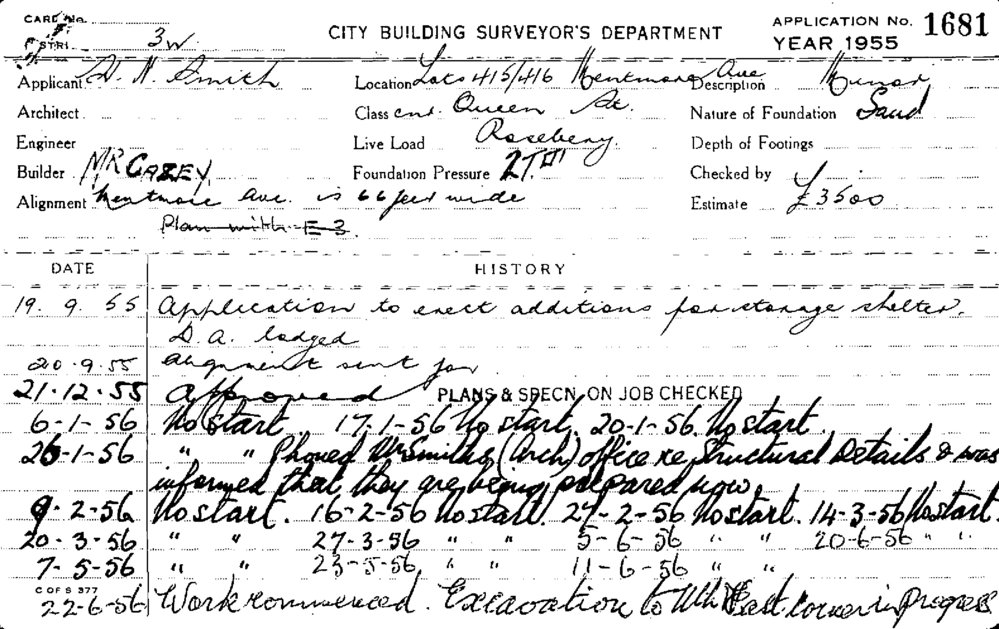 CARD No.
CITY BUILDING SURVEYOR'S DEPARTMENT
APPLICATION No. 1681
DISTRI. 3W
YEAR 1955
Applicant D. N. Smith
Location Lots 415/416 Mentmore Ave
Description Minor
Architect
Class cnr. Queen St.
Nature of Foundation Sand
Engineer
Live Load Rosebery.
Depth of Footings
Builder MR CASEY
Foundation Pressure 2T
Checked by
Alignment Mentmore Ave. is 66 feet wide
Estimate £3500
Plan with E 3.
DATE HISTORY
19. 9. 55 Application to erect additions for storage shelter.
D.A. lodged
20.9.55 Alignment sent for
21.12.55 Approved PLANS & SPECN. ON JOB CHECKED
6-1-56 No start. 17-1-56 No start. 20-1-56. No start.
26-1-56 " " Phoned Mr Smiths (Arch) office re Structural Details & was
informed that they are being prepared now.
9-2-56 No start. 16-2-56 No start. 27-2-56 No start. 14-3-56 No start.
20-3-56 " " 27-3-56 " " 5-6-56 " " 20-6-56 " "
7-5-56 " " 23-5-56 " " 11-6-56 " "
C OF S 377
22-6-56 Work commenced. Excavation to East corner in progress